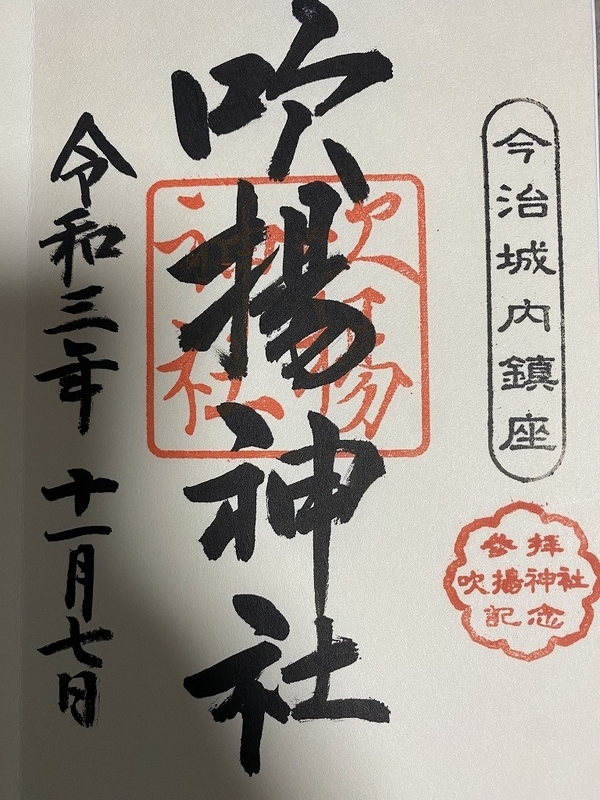 今治城内鎮座
參拝
吹揚神社
記念
吹揚神社
吹揚
神社
令和三年 十一月七日